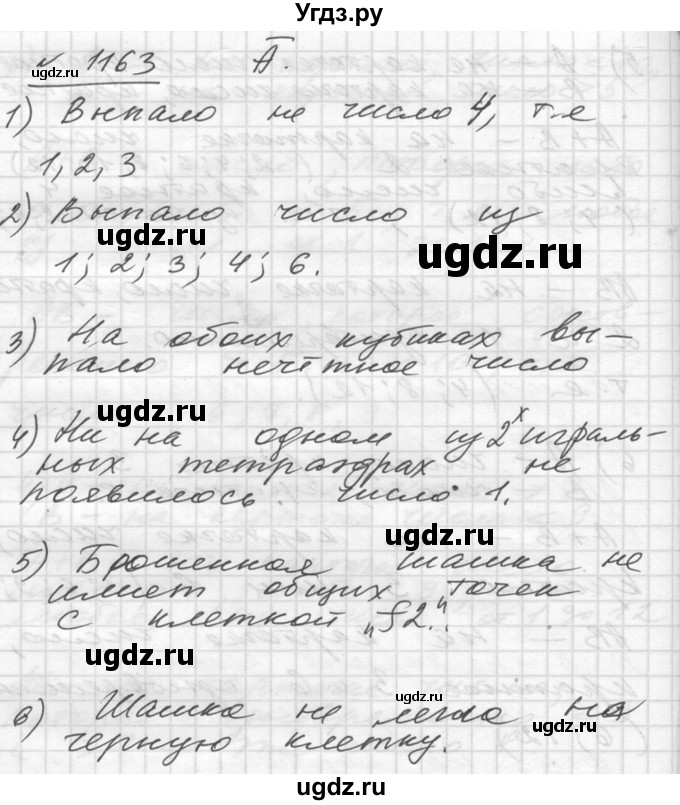 Угдз.ру
№ 1163 Ā.
ugdz.ru
1) Выпало не число 4, т.е
1, 2, 3
2) Выпало число из
ugdz.ru
1; 2; 3; 4; 6.
ugdz.ru
3) На обоих кубиках вы-
пало нечётное число
ugdz.ru
4) Ни на одном из 2х играль-
ных тетраэдрах не
появилось число 1.
ugdz.ru
5) Брошенная шашка не
имеет общих точек
с клеткой „f2."
ugdz.ru
ugdz.ru
6) Шашка не легла на
ugdz.ru
черную клетку.
ugdz.ru
ugdz.ru